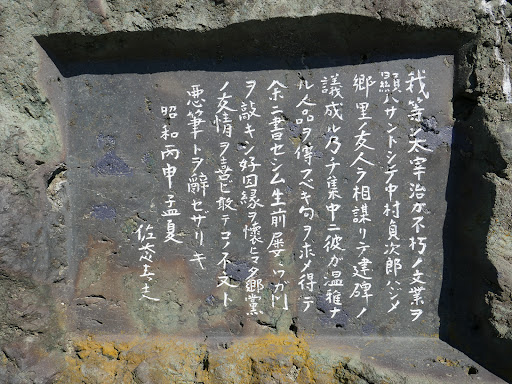 我等ノ太宰治ガ不朽ノ文業ヲ
顯ハサントシテ中村貞次郎ハジメ
郷里ノ友人ラ相謀リテ建碑ノ
議成ル乃チ集中ニ彼ガ温雅ナ
ル人品ヲ傳フベキ句ヲ求メ得テ
余ニ書セシム生前屡〻ワガ門
ヲ敲キシ好因縁ヲ懐ヒマタ郷黨
ノ友情ヲ喜ビ敢テコノ不文ト
悪筆トヲ辭セザリキ
昭和丙申孟夏
佐藤春夫